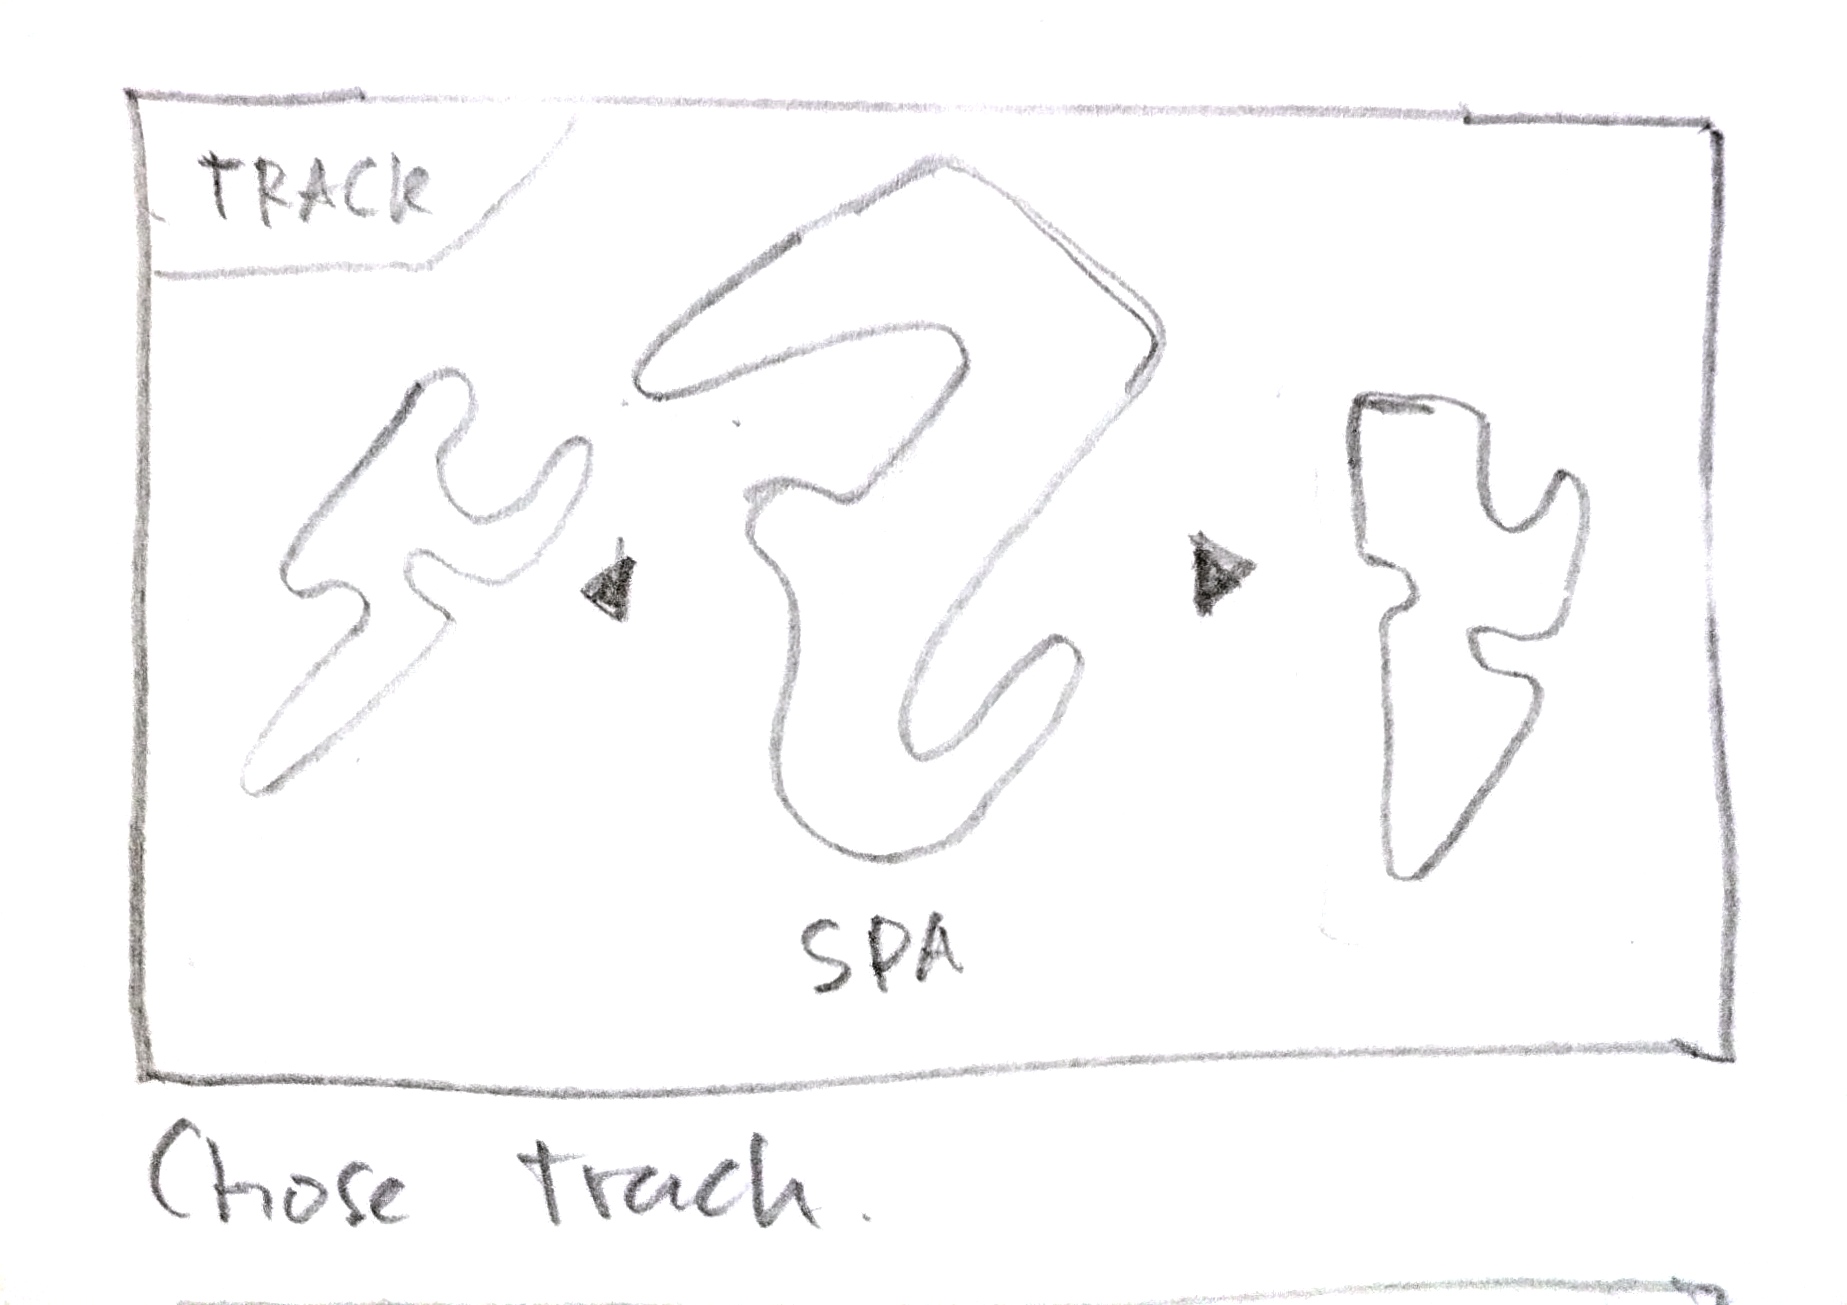 TRACK
SPA
Chose track.